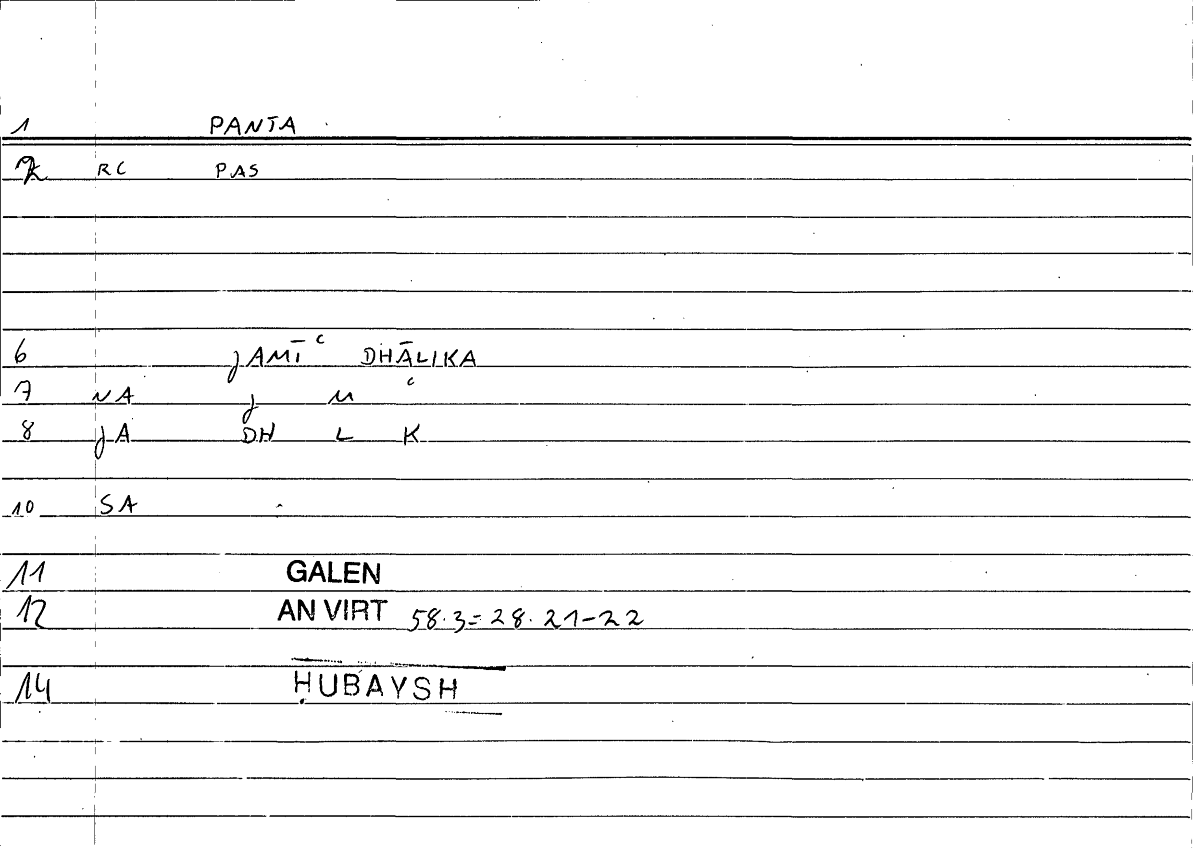 1 PANTA
2 RC PAS
6 JAMĪʿ DHĀLIKA
7 NA J M ʿ
8 JA DH L K
10 SA
11 GALEN
12 AN VIRT 58.3=28.21-22
14 ḤUBAYSH